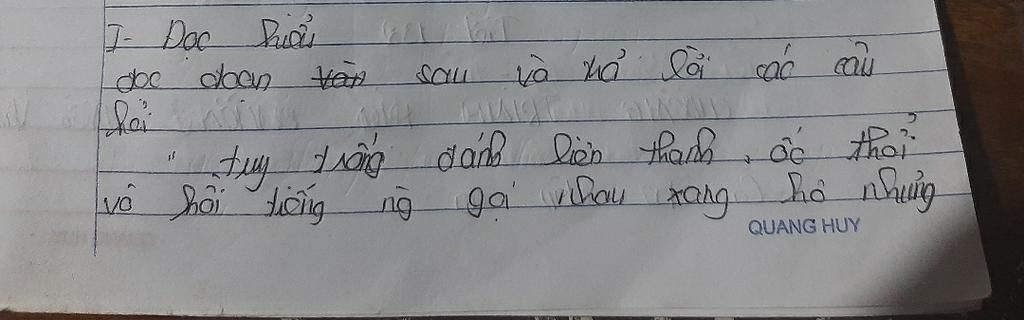 I- Đọc hiểu
đọc đoạn văn sau và trả lời các câu
hỏi
" tuy trống đánh liên thanh, ốc thổi
vô hồi tiếng ng gọi nhau xang hộ nhưng
QUANG HUY